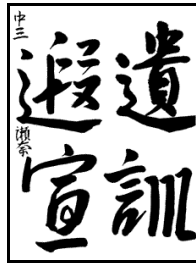 遺訓
遐宣
中三 瀬奈